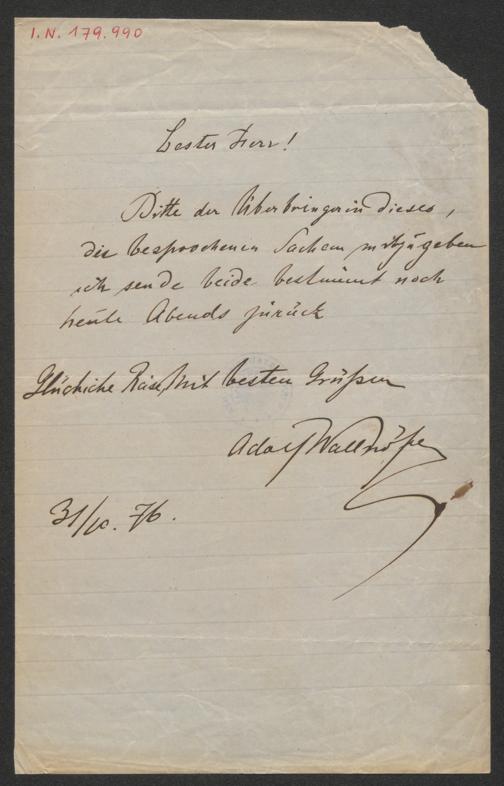 I.N. 179.990
Bester Herr!
Bitte der Überbringerin dieses,
die besprochenen Sachen mitzugeben
ich sende beide bestimmt noch
heute Abends zurück
Glückliche Reise, Mit besten Grüßen
Adolf Wallnöfer
31/10. 76.